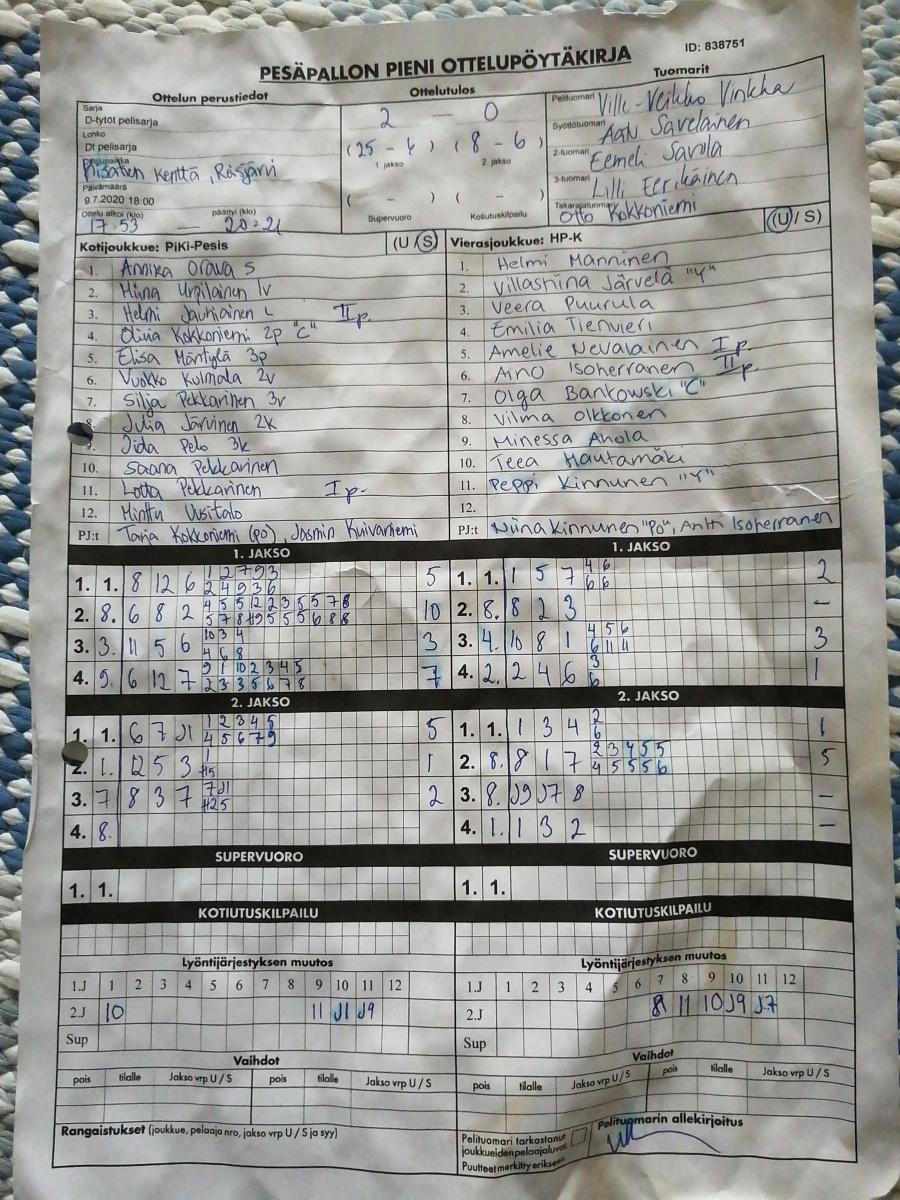 ID: 838751
PESÄPALLON PIENI OTTELUPÖYTÄKIRJA
Ottelun perustiedot
Sarja
D-tytöt pelisarja
Lohko
Dt pelisarja
Pelipaikka
Kenttä, Reisjärvi
Päivämäärä
9.7.2020 18:00
Ottelu alkoi (klo) päättyi (klo)
17:53 — 20:21
Ottelutulos
2 — 0
(25 - 6) (8 - 6)
1 jakso 2. jakso
( - ) ( - )
Supervuoro Kotiutuskilpailu
Tuomarit
Pelituomari Ville-Veikko Vinkka
Syöttötuomari Aatu Savelainen
2-tuomari Eemeli Savola
3-tuomari Lilli Eerikäinen
Takarajatuomari Otto Kokkoniemi
Kotijoukkue: PiKi-Pesis (U / S)
1. Annika Orava S
2. Miina Urpilainen lv
3. Helmi Jauhiainen L II p.
4. Olivia Kokkoniemi 2p "C"
5. Elisa Mäntylä 3p
6. Vuokko Kulmala 2v
7. Silja Pekkarinen 3v
8. Julia Järvinen 2k
9. Iida Pelo 3k
10. Saana Pekkarinen
11. Lotta Pekkarinen I p.
12. Minttu Uusitalo
PJ:t Tarja Kokkoniemi (po), Jasmin Kuivaniemi
(U / S)
Vierasjoukkue: HP-K
1. Helmi Manninen
2. Villastiina Järvelä "Y"
3. Veera Puurula
4. Emilia Tienvieri
5. Amelie Nevalainen I p.
6. Aino Isoherranen II p.
7. Olga Bankowski "C"
8. Vilma Olkkonen
9. Minessa Ahola
10. Teea Hautamäki
11. Peppi Kinnunen "Y"
12.
PJ:t Niina Kinnunen "Po", Antti Isoherranen
1. JAKSO
1. 1. 8 12 6 1 2 7 9 3 5
2 4 9 3 6
2. 8. 6 8 2 10
3. 3. 11 5 6 10 3 4 3
4 6 8
4. 9. 6 12 7 9 1 10 2 3 4 5 7
2 3 3 5 6 7 8
1. JAKSO
1. 1. 1 5 7 4 6 2
6 6
2. 8. 8 2 3 -
3. 4. 10 8 1 4 5 6 3
6 11 11
4. 2. 2 4 6 3 1
6
2. JAKSO
1. 1. 6 7 J1 1 2 3 4 5 5
4 5 6 7 9
2. 1. 12 5 3 1 1
3. 7 8 3 7 7 J1 2
4. 8.
2. JAKSO
1. 1. 1 3 4 2 1
6
2. 8. 8 1 7 2 3 4 5 5 5
4 5 5 5 6
3. 8. J9 J7 8 -
4. 1. 1 3 2 -
SUPERVUORO
1. 1.
SUPERVUORO
1. 1.
KOTIUTUSKILPAILU
KOTIUTUSKILPAILU
Lyöntijärjestyksen muutos
1.J 1 2 3 4 5 6 7 8 9 10 11 12
2.J 10 11 J1 J9
Sup
Lyöntijärjestyksen muutos
1.J 1 2 3 4 5 6 7 8 9 10 11 12
2.J 8 11 10 J9 J7
Sup
Vaihdot
pois tilalle Jakso vrp U / S pois tilalle Jakso vrp U / S
Vaihdot
pois tilalle Jakso vrp U / S pois tilalle Jakso vrp U / S
Rangaistukset (joukkue, pelaaja nro, jakso vrp U / S ja syy)
Pelituomari tarkastanut
joukkueiden pelaajaluvat.
Puutteet merkitty erikseen
Pelituomarin allekirjoitus